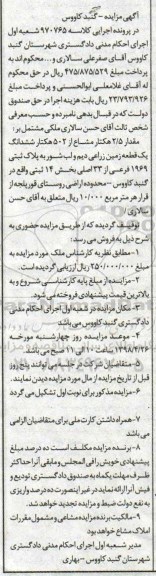 آگهی مزایده - گنبد کاووس
در پرونده اجرایی کلاسه ۹۷۰۷۶۵ شعبه اول
اجرای احکام مدنی دادگستری شهرستان گنبد
کاووس آقای صفرعلی سالاری و... محکوم اند به
پرداخت مبلغ ۴۷۵/۸۷۵/۵۲۹ ریال در حق محکوم
له آقای غلامعلی ابوالحسنی و پرداخت مبلغ
۲۳/۷۹۳/۹۲۶ ریال بابت هزینه اجرا در حق صندوق
دولت که در قبال بدهی نامبرده و حسب معرفی
شخص ثالث آقای حسن سالاری ملکی مشتمل بر:
مقدار ۲/۵ هکتار مشاع از ۵۰۲ هکتار ششدانگ
یک قطعه زمین زراعی دیم و لب شور به پلاک ثبتی
۱۹۶۹ فرعی از ۳۳ اصلی بخش ۱۴ ثبتی واقع در
گنبد کاووس - محدوده اراضی روستای قوریلجه از
قرار هر متر مربع ۱۰/۰۰۰ ریال متعلق به آقای حسن
سالاری
توقیف گردیده که از طریق مزایده حضوری به
شرح ذیل به فروش می رسد:
۱- مطابق نظریه کارشناس ملک مورد مزایده به
مبلغ ۲۵۰/۰۰۰/۰۰۰ ریال ارزیابی گردیده است.
۲- مزایده از مبلغ پایه کارشناسی شروع و به
بالاترین قیمت پیشنهادی فروخته می شود.
۳- مکان مزایده در شعبه اول اجرای احکام مدنی
دادگستری گنبد کاووس می باشد
۴- موعد مزایده روز چهارشنبه مورخه
۱۳۹۸/۳/۲۶ ساعت ۱۰ الی ۱۱ صبح می باشد
۵- متقاضیان شرکت در جلسه می توانند پنج روز
قبل از تاریخ مزایده از مال مورد مزایده دیدن نمایند.
۶- مزایده مذکور برای نوبت اول تشکیل می گردد
۷- همراه داشتن کارت ملی برای متقاضیان الزامی
می باشد
۸- برنده مزایده مکلف است ده درصد مبلغ
پیشنهادی خویش را فی المجلس و مابقی آنرا حداکثر
ظرف مهلت یکماه به صندوق دادگستری تودیع و
فیش آنرا ارائه نماید در غیر اینصورت ده درصد واریزی
به نفع دولت ضبط و مزایده تجدید خواهد شد.
۹- مالکیت برنده مزایده مشاعی و مشمول مقررات
املاک مشاع خواهد بود
مدیر شعبه اول اجرای احکام مدنی دادگستری
شهرستان گنبد کاووس - بهاری